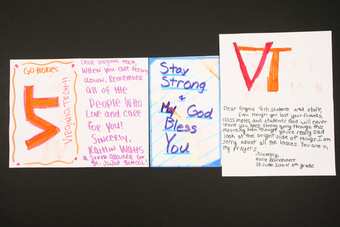 Go Hokies
VT
VIRGINIA TECH!!!
Dear Virginia Tech,
When you are feeling
down, Remember
all of the
People Who
Love and care
for you!
Sincerely,
Kaitlin Watts
St. Jude School
Stay
Strong
&
My God
Bless
You
VT
Dear Virginia Tech students and staff,
Even though you lost your friends,
class mates, and students God will never
leave you. Keep strong going through this
mourning. Even though you're really sad
look at the bright side of things. I am
sorry about all the losses. You are in
my Prayers.
Sincerely,
St. Jude School 6th grade